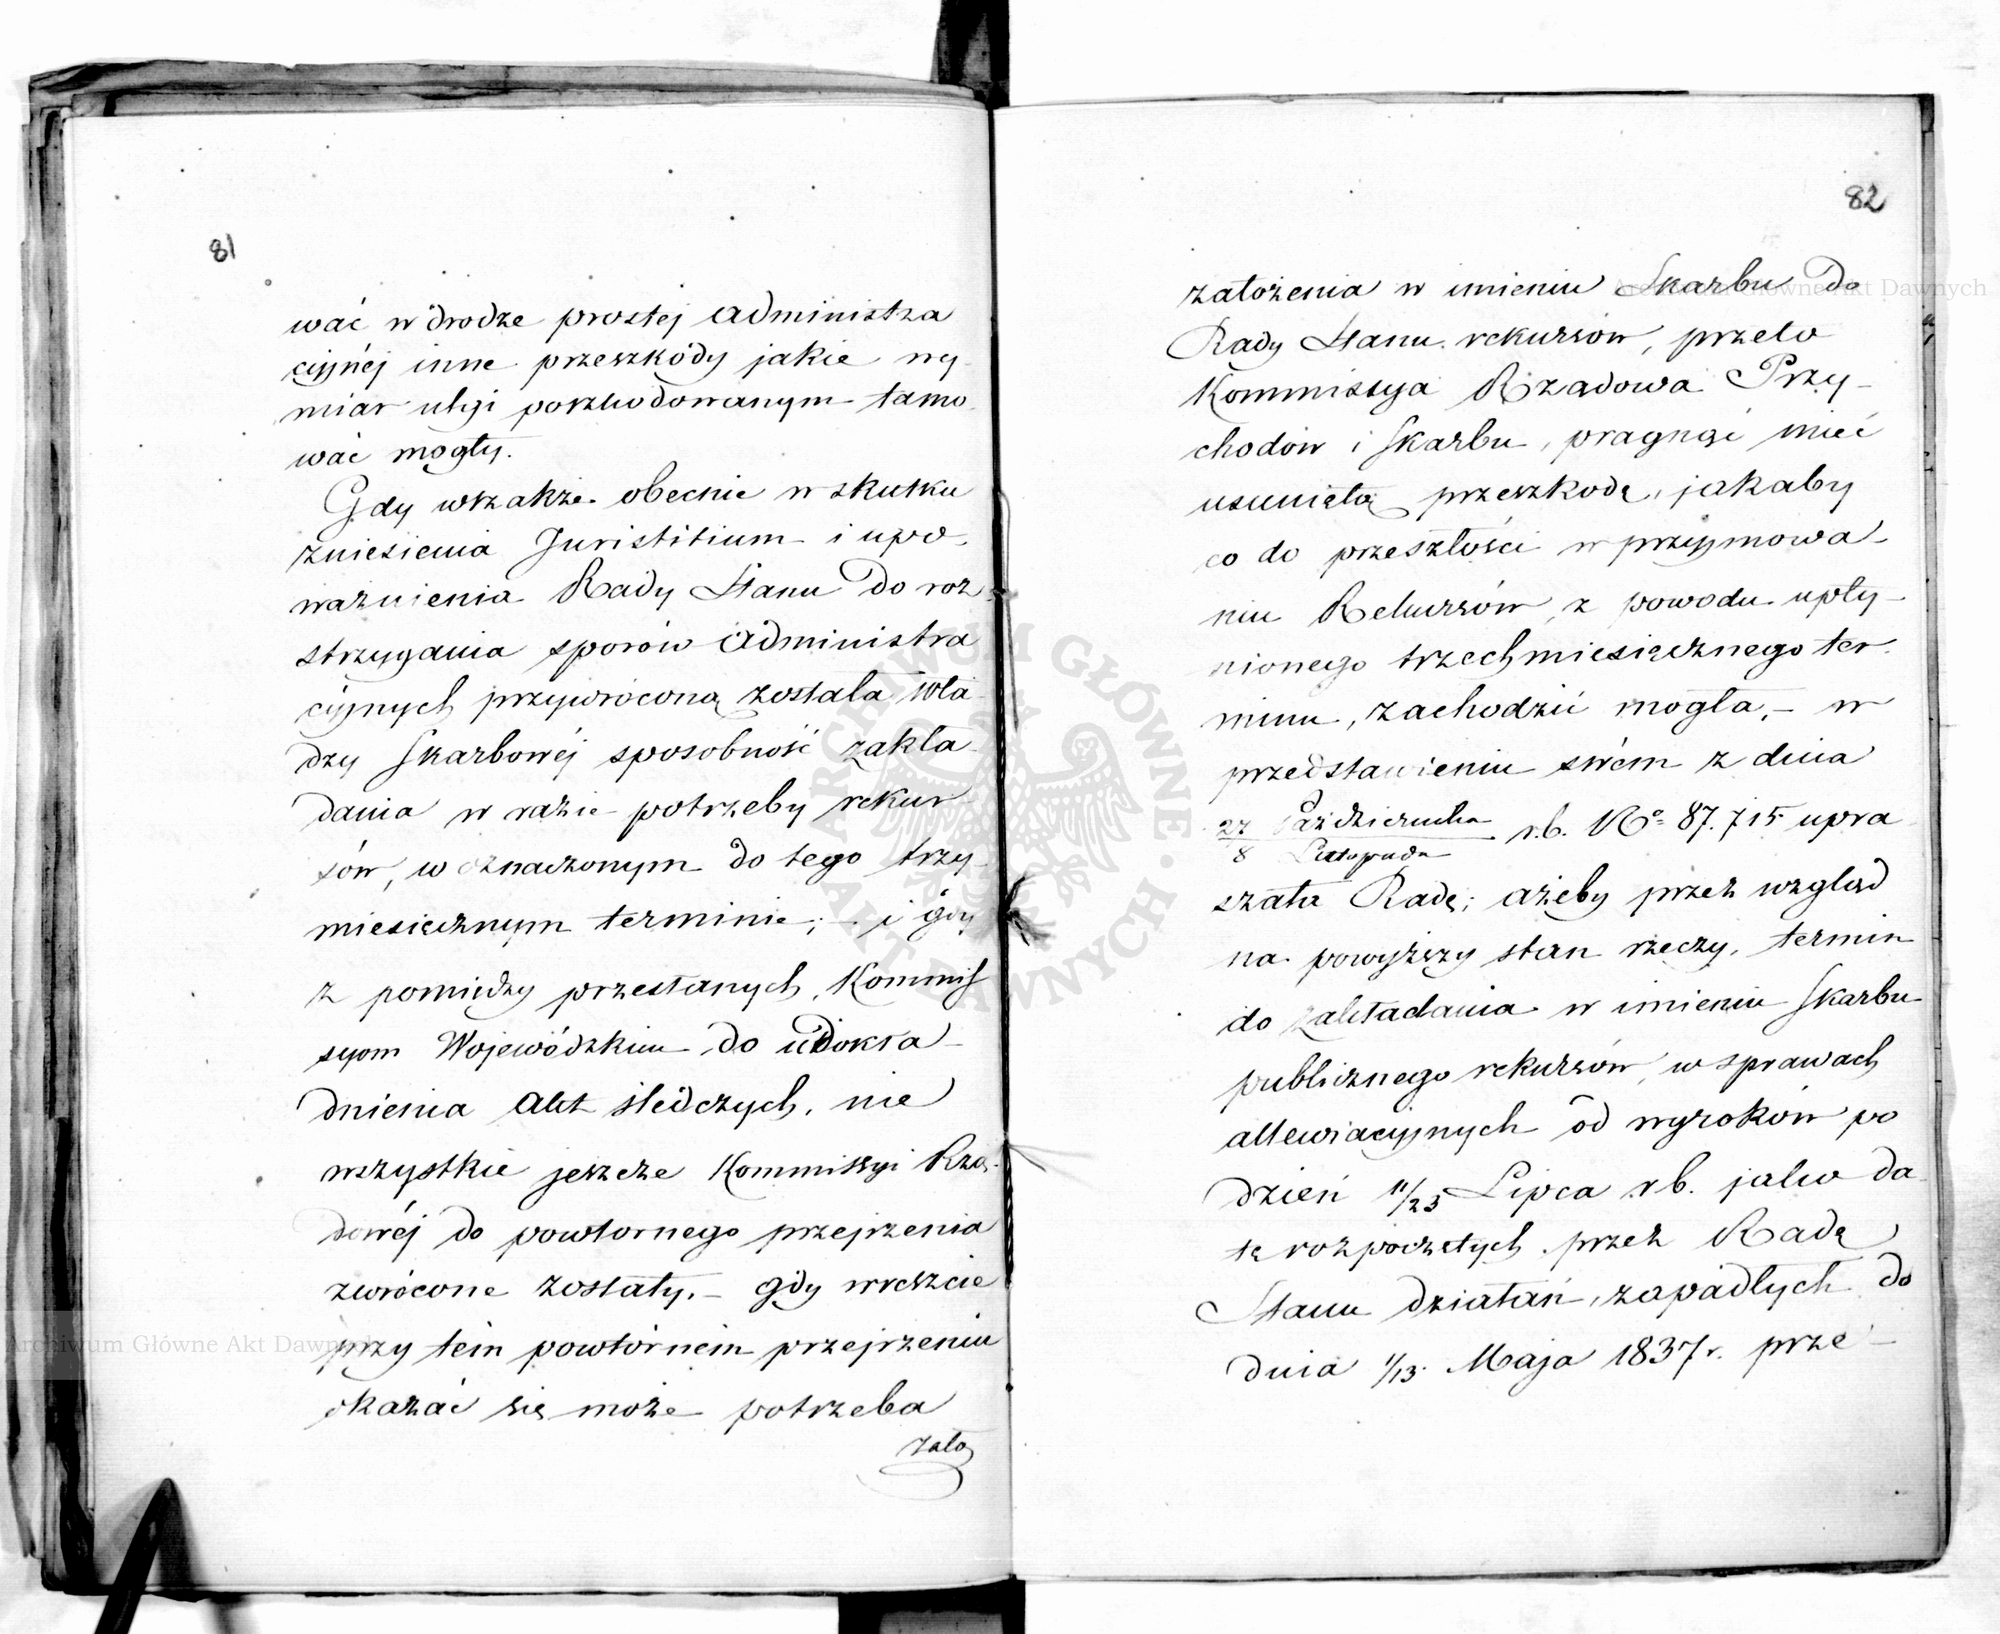 81
wać w drodze prostej administra
cyjnéj inne przeszkody jakie wy-
miar ulgi poszkodowanym tamo-
wać mogły.
Gdy wszakże obecnie w skutku
zniesienia Juristitium i upo-
ważnienia Rady Stanu do roz-
strzygania sporów administra
cyjnych przywróconą została wła-
dzy Skarbowéj sposobność zakła-
dania w razie potrzeby rekur-
sów, w oznaczonym do tego trzy-
miesięcznym terminie; – i gdy
z pomiędzy przesłanych, Kommis
syom Wojewódzkim do udokła-
dnienia akt śledczych, nie
wszystkie jeszcze Kommissyi Rzą-
dowéj do powtornego przejrzenia
zwrócone zostały. – gdy wreszcie
przy tém powtórném przejrzeniu
okazać się może potrzeba
zało
82
założenia w imieniu Skarbu do
Rady Stanu rekursów, przeto
Kommissya Rządowa Przy-
chodów i Skarbu, pragnąc mieć
usuniętą przeszkodę, jakaby
co do przeszłości w przyjmowa-
niu Rekursów, z powodu upły-
nionego trzechmiesięcznego ter-
minu, zachodzić mogła, – w
przedstawieniu swém z dnia
27 Października / 8 Listopada r.b. No 87.715 upra
szała Radę; ażeby przez wzgląd
na powyższy stan rzeczy, termin
do zakładania w imieniu Skarbu
publicznego rekursów, w sprawach
allewiacyjnych od wyroków po
dzień 11/23 Lipca r b. jako da-
tę rozpoczętych przez Radę
Stanu działań, zapadłych do
dnia 1/13. Maja 1837 r. prze-
Archiwum Główne Akt Dawnych
Archiwum Główne Akt Dawnych
ARCHIWUM GŁÓWNE AKT DAWNYCH